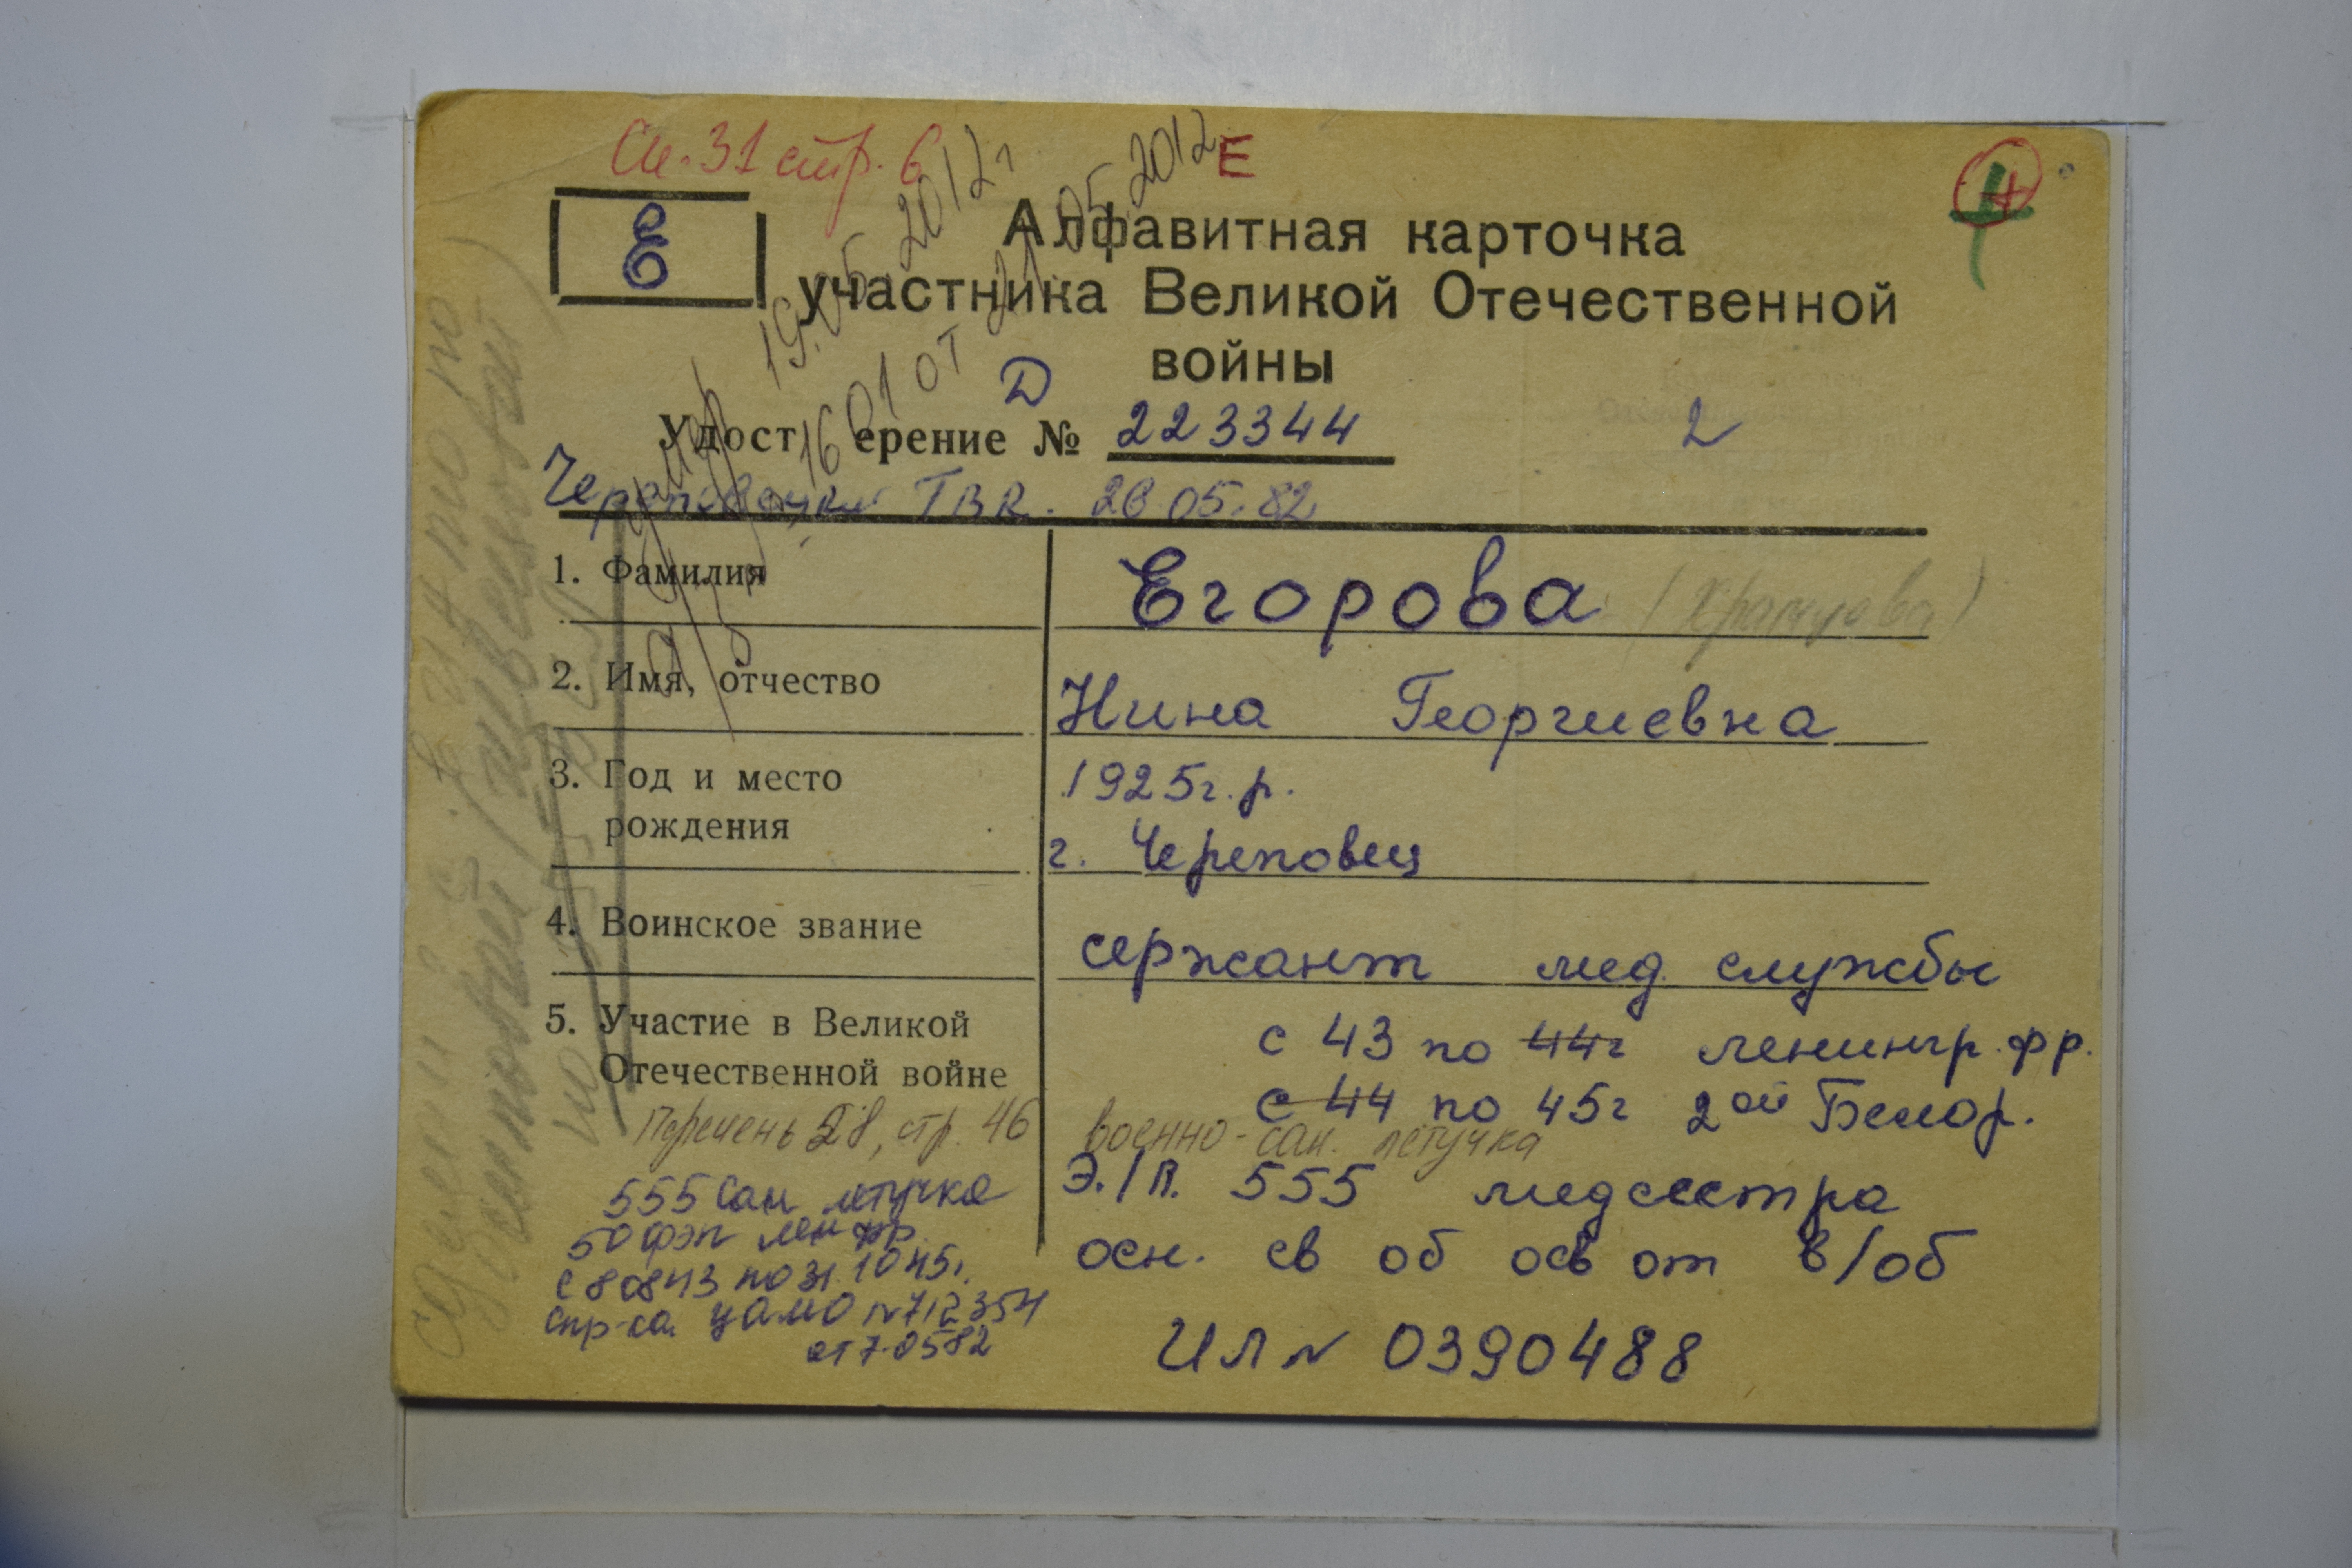 Сп. 31 стр. 6
Е
4
Е
Алфавитная карточка
участника Великой Отечественной
войны
19.05.2012г
1601 от 21.05.2012
Д
Удост ерение № 223344
2
Череповецкий ГВК. 26.05.82
1. Фамилия
Егорова (Храпцова)
2. Имя, отчество
Нина Георгиевна
3. Год и место
рождения
1925г.р.
г. Череповец
4. Воинское звание
сержант мед. службы
5. Участие в Великой
Отечественной войне
с 43 по 44г ленингр. фр.
с 44 по 45г 2ой Белор.
Перечень 28, стр. 46
военно-сан. летучка
Э./П. 555 медсестра
осн. св об осв от в/об
ИЛ № 0390488
555 сан летучка
50 фэп лен фр.
с 80843 по 31.1045г.
спр-ка ЦАМО №712354
от 7.0582